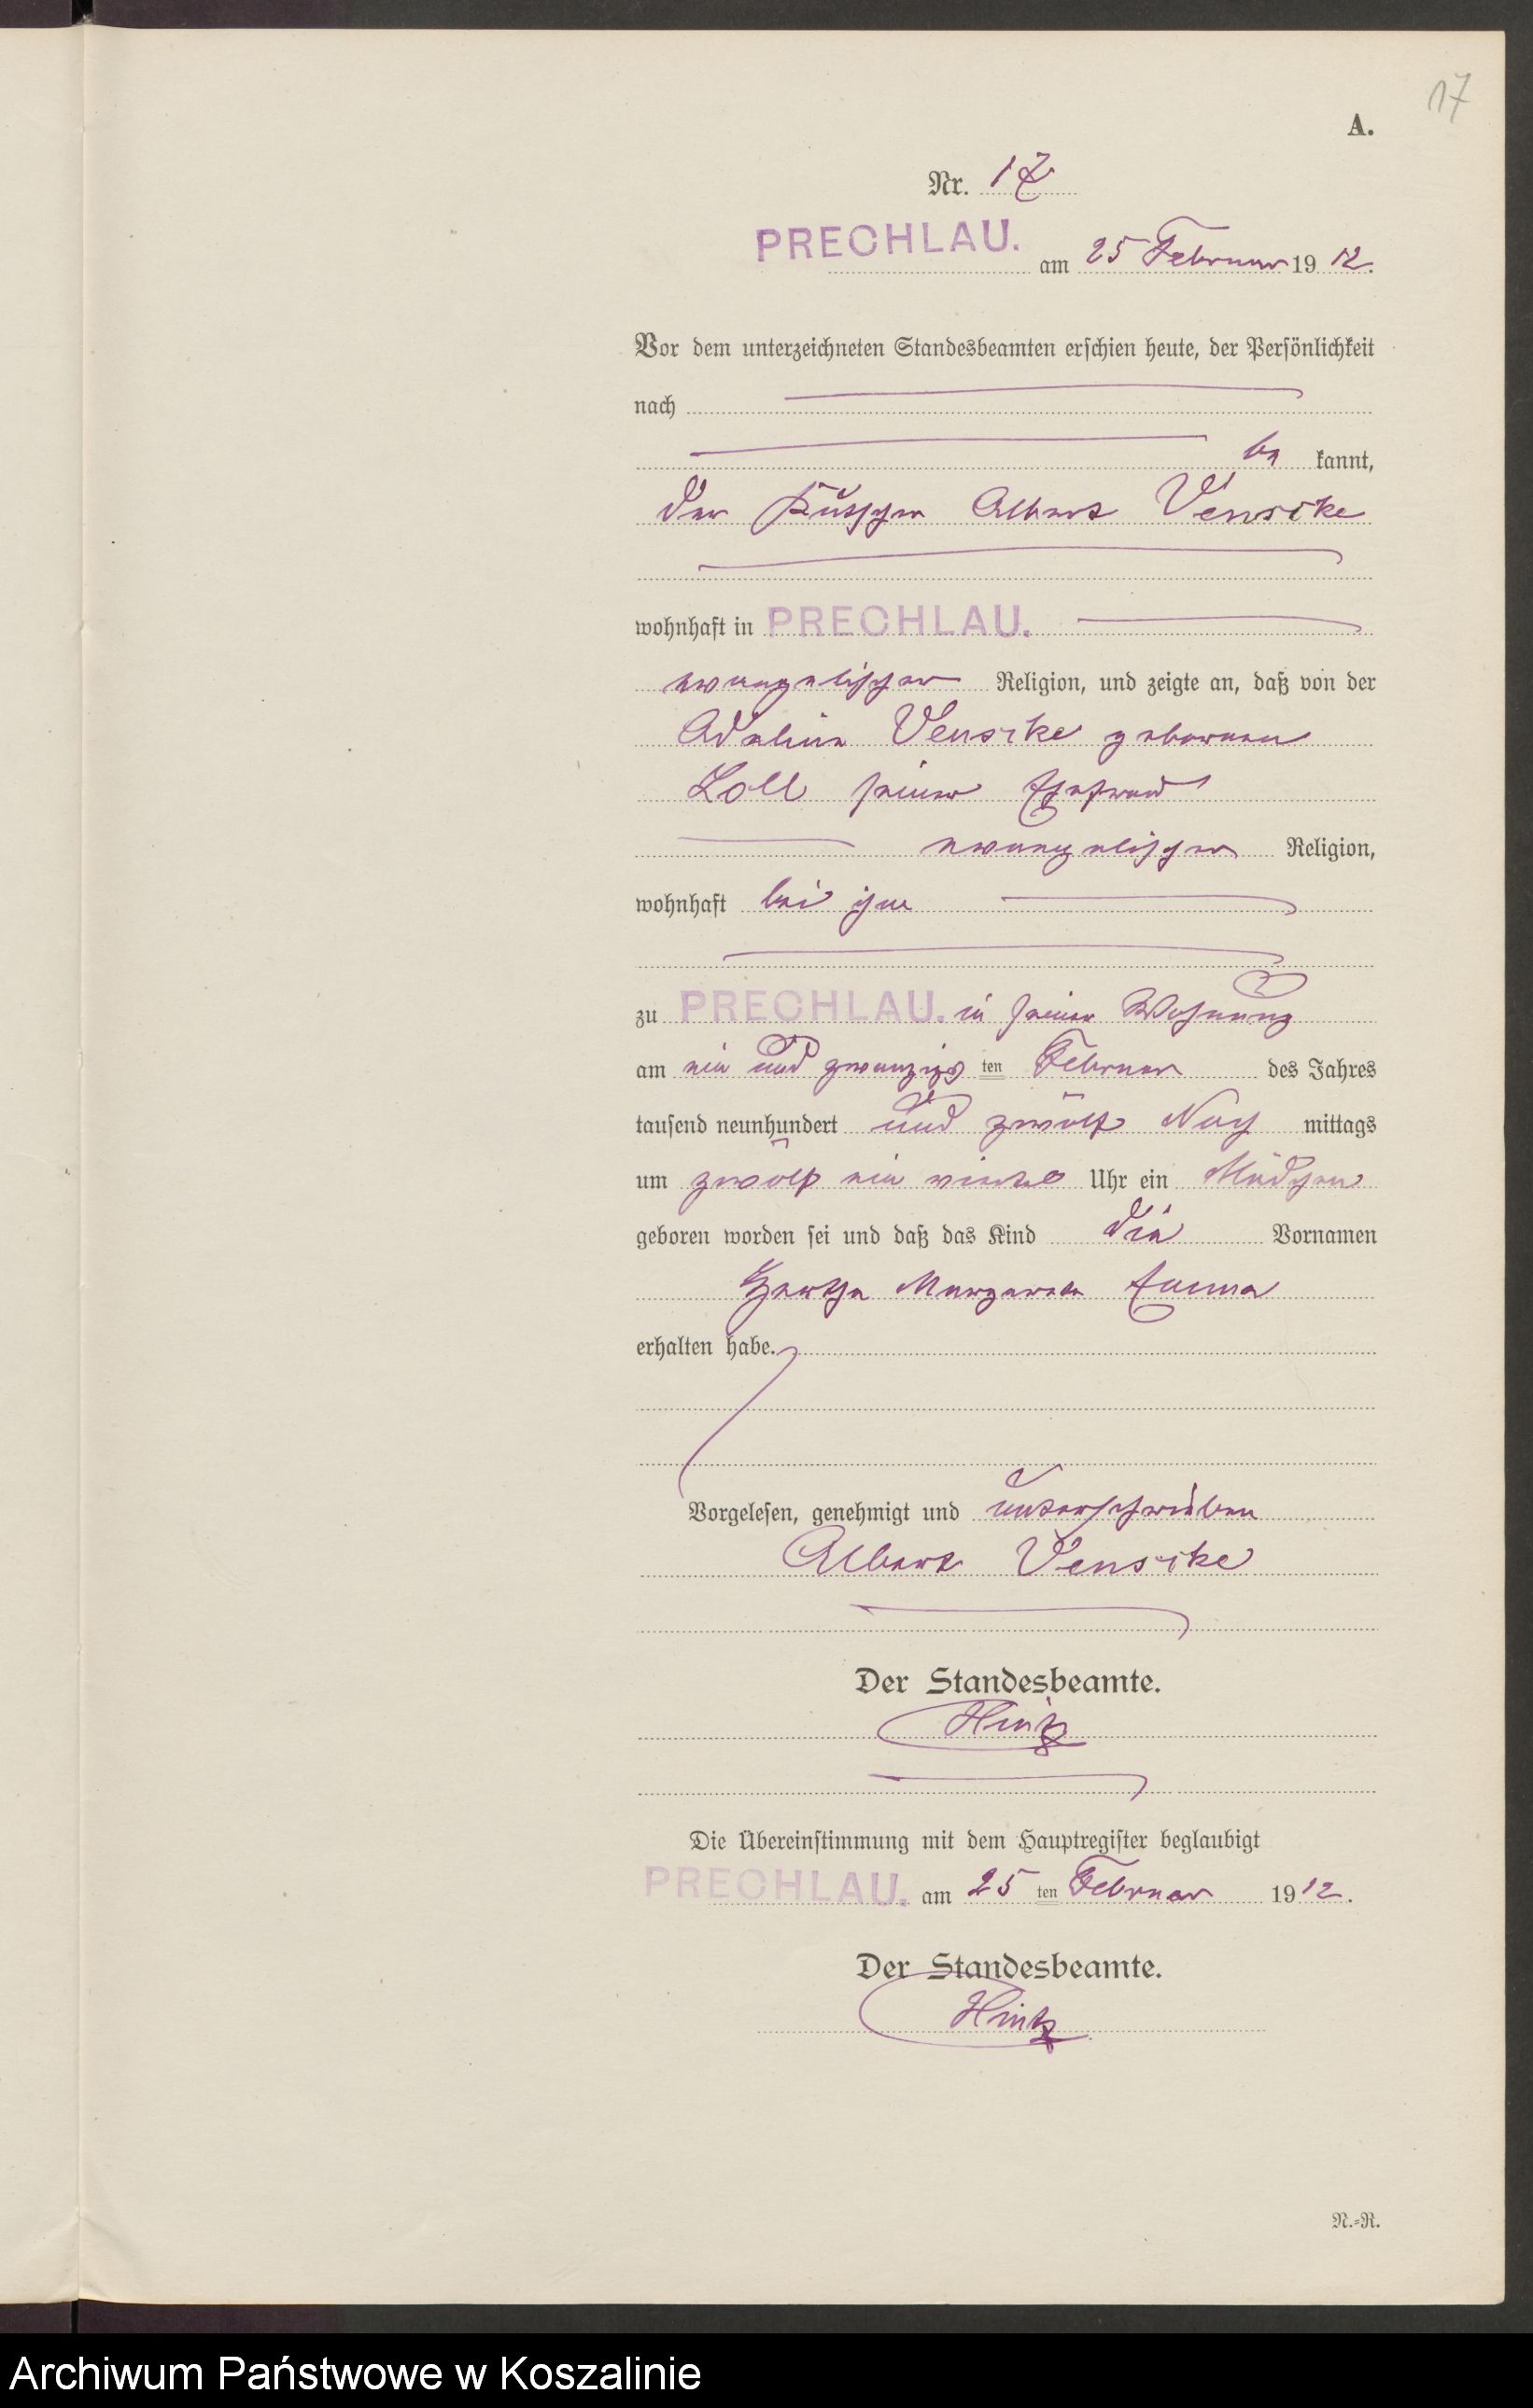 17
A.
Nr. 17
PRECHLAU. am 25 Februar 1912.
Vor dem unterzeichneten Standesbeamten erschien heute, der Persönlichkeit
nach
be kannt,
der Kutscher Albert Venske
wohnhaft in PRECHLAU.
ewangelischer Religion, und zeigte an, daß von der
Adeline Venske geborenen
Loll seiner Ehefrau
ewangelischer Religion,
wohnhaft bei ihm
zu PRECHLAU. in seiner Wohnung
am ein und zwanzigs ten Februar des Jahres
tausend neunhundert und zwölf Nach mittags
um zwölf ein viertel Uhr ein Mädchen
geboren worden sei und daß das Kind die Vornamen
Hertha Margarete Emma
erhalten habe.
Vorgelesen, genehmigt und unterschrieben
Albert Venske
Der Standesbeamte.
Hintz
Die Übereinstimmung mit dem Hauptregister beglaubigt
PRECHLAU. am 25 ten Februar 1912.
Der Standesbeamte.
Hintz
N.=R.
Archiwum Państwowe w Koszalinie